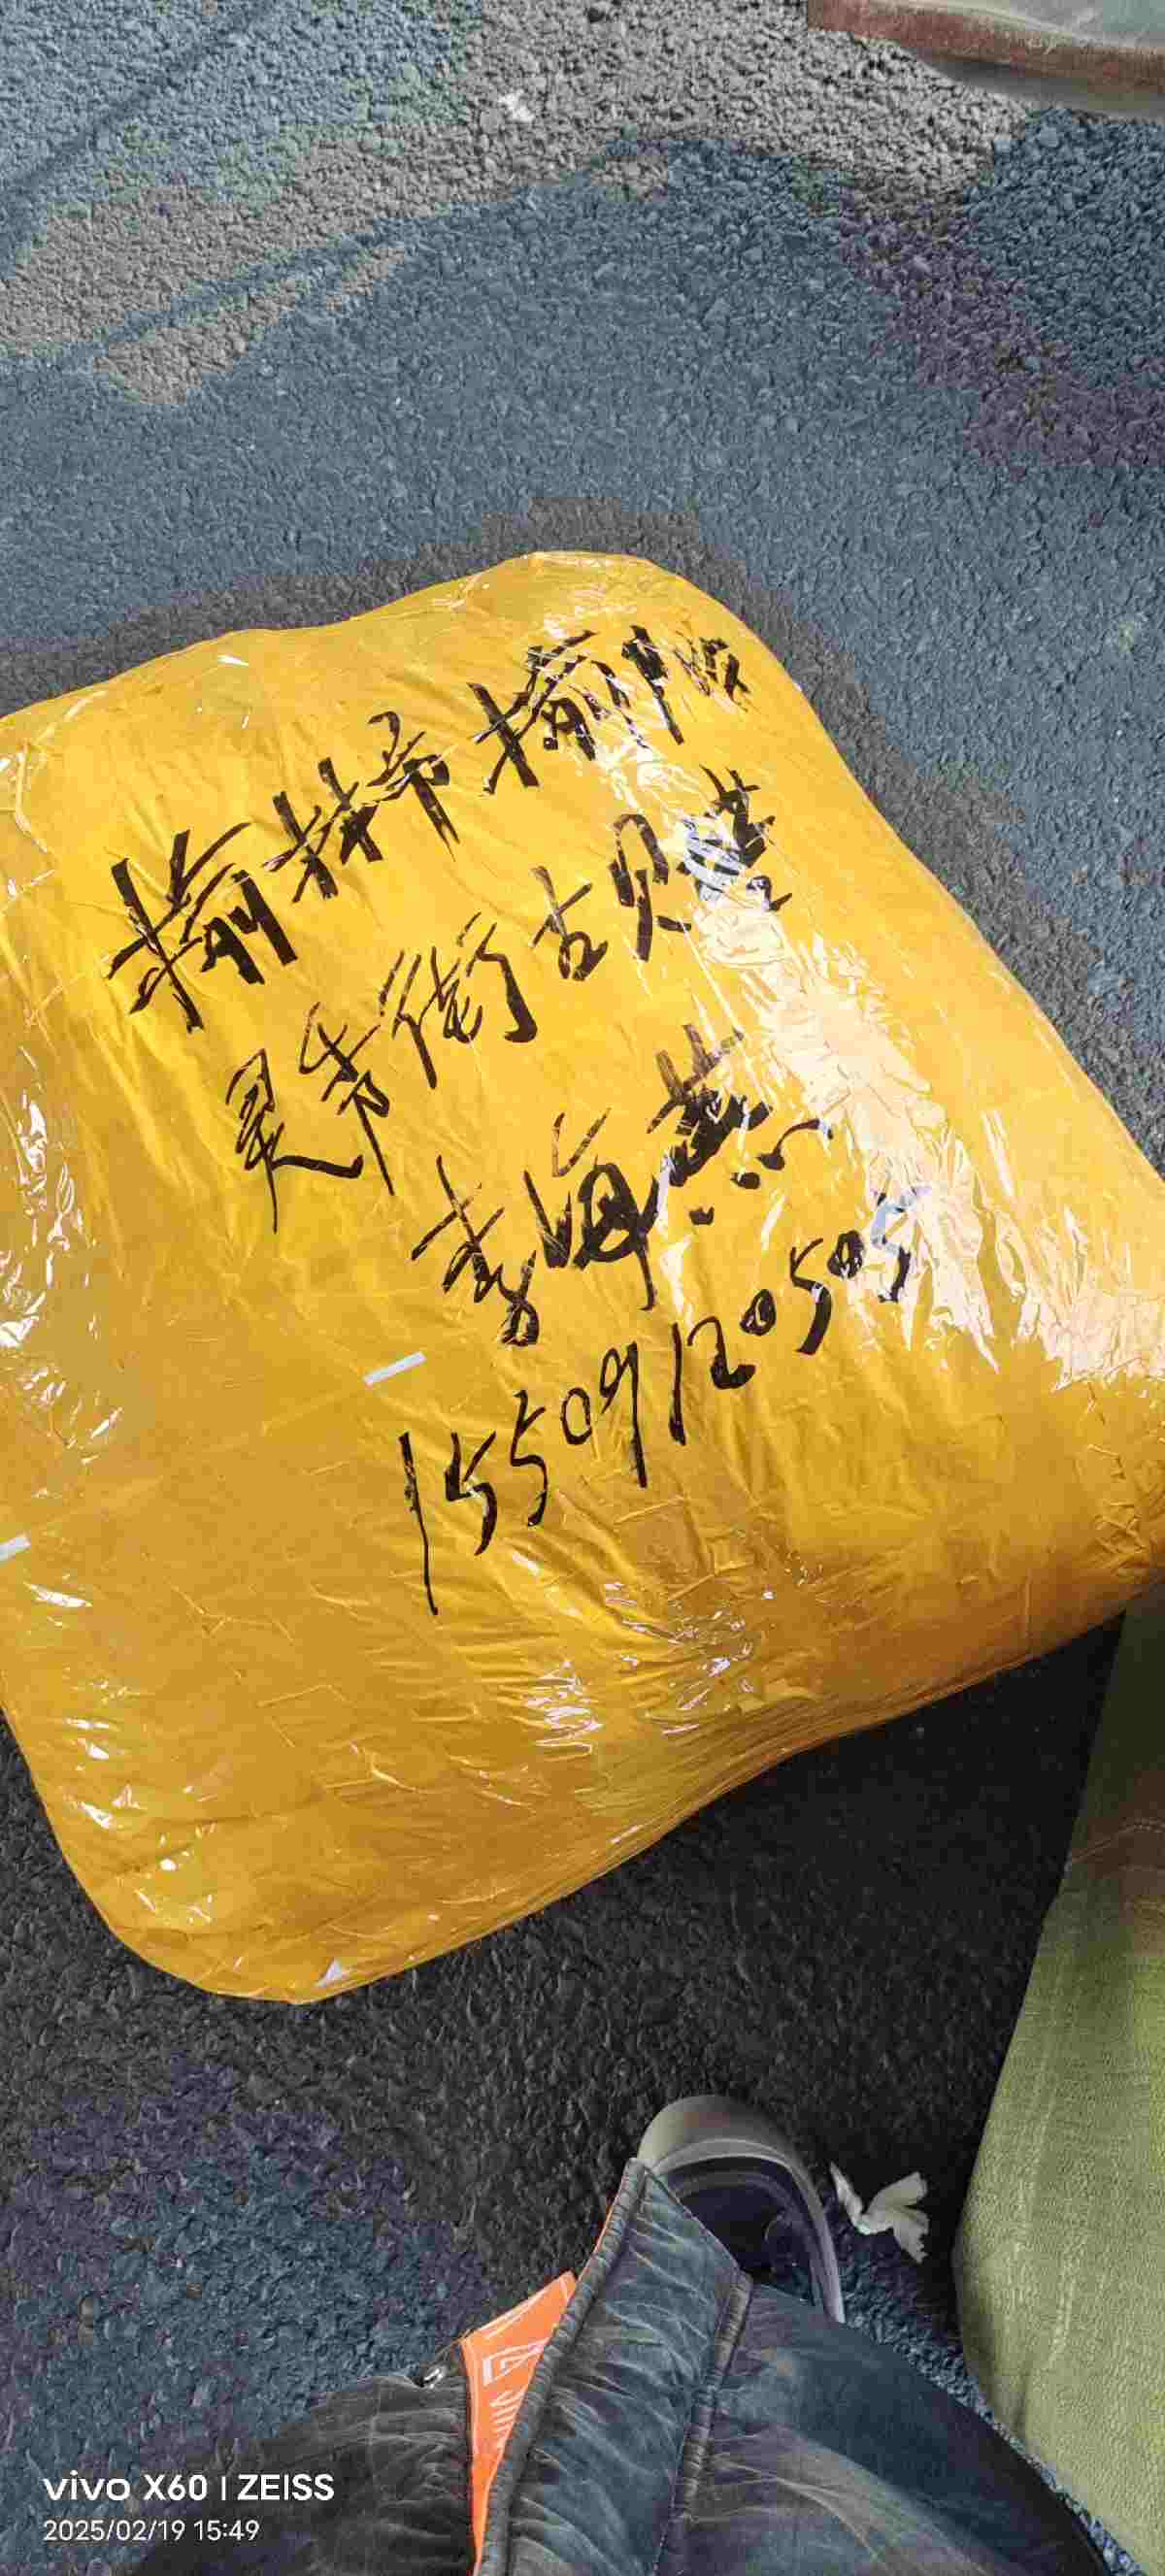 榆林市榆阳
灵秀街古贝壹
李海燕
15509120505
vivo X60 | ZEISS
2025/02/19 15:49